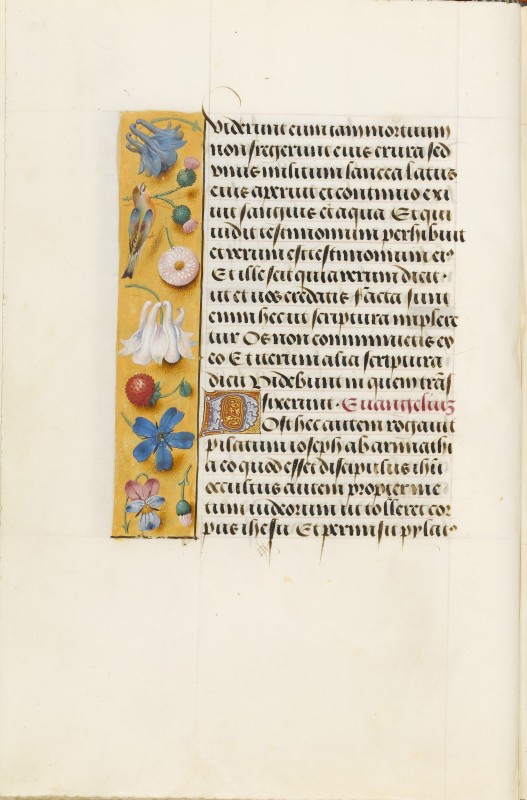 viderunt eum iam mortuum
non fregerunt eius crura sed
vnus militum lancea latus
eius aperuit et continuo exi
uit sanguis et aqua Et qui
uidit testimonium perhibuit
et verum est testimonium eiꝰ
Et ille scit quia verum dicit ·
ut et uos credatis Facta sunt
enim hec ut scriptura implere
tur Os non comminuetis ex
eo Et iterum alia scriptura
dicit Videbunt in quem trãs
fixerunt · Euangeliuz
POst hec autem rogauit
pilatum ioseph ab armathi
a eo quod esset discipulus ihũ
occultus autem propter me
tum iudeorum ut tolleret cor
pus ihesu Et permisit pylatꝰ